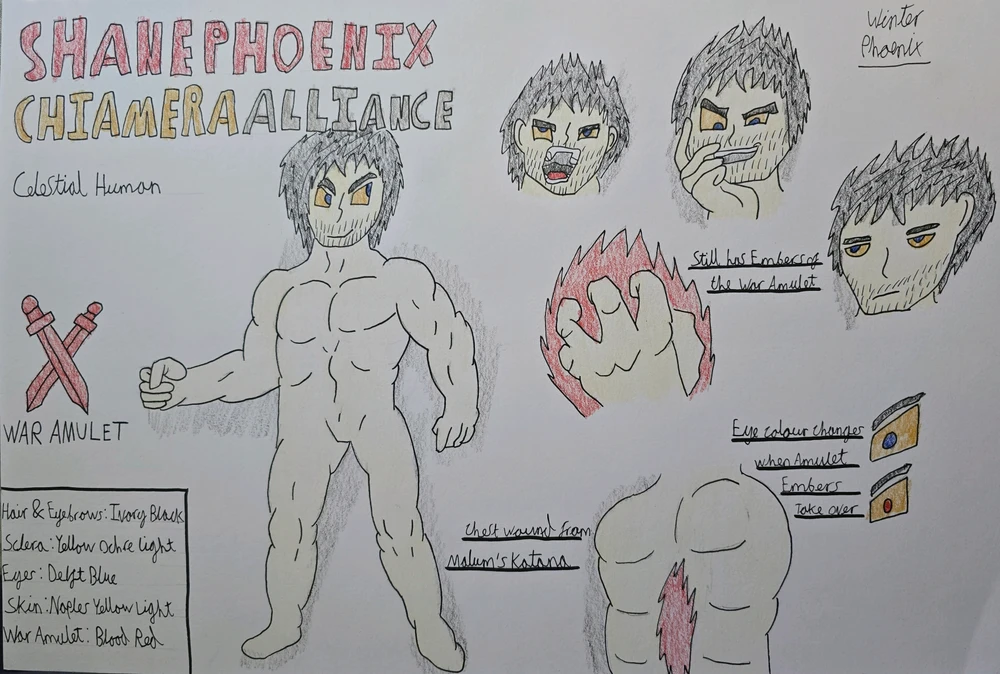 SHANE PHOENIX
CHIAMERA ALLIANCE
Winter
Phoenix
Celestial Human
Still has Embers of
the War Amulet
WAR AMULET
Eye colour changes
when Amulet
Embers
Take over
Chest wound from
Malum's Katana
Hair & Eyebrows: Ivory Black
Sclera: Yellow Ochre Light
Eyes: Delft Blue
Skin: Naples Yellow Light
War Amulet: Blood Red